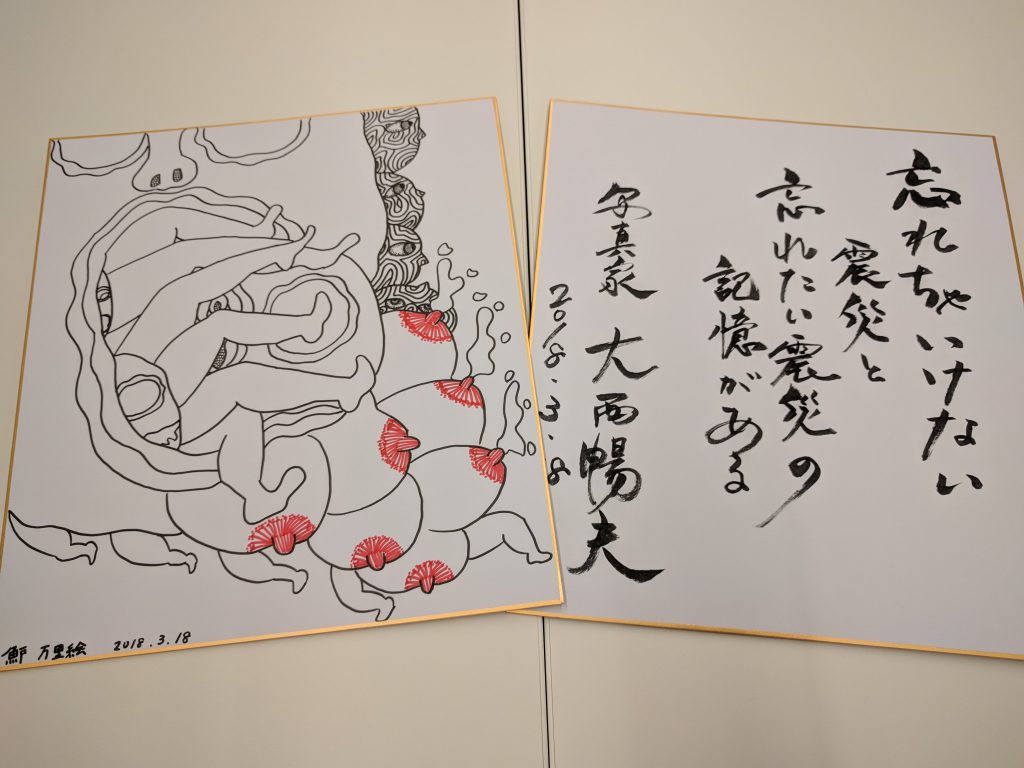 忘れちゃいけない
震災と
忘れたい震災の
記憶がある
写真家 大西暢夫
2018.3.18
鮃 万里絵 2018.3.18